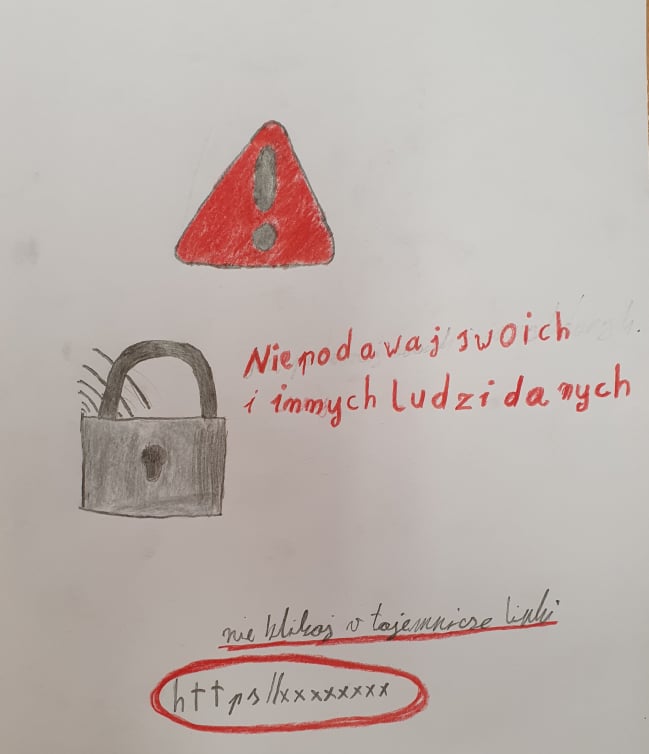 Nie podawaj swoich
i innych ludzi danych
nie klikaj w tajemnicze linki
https//xxxxxxxxx